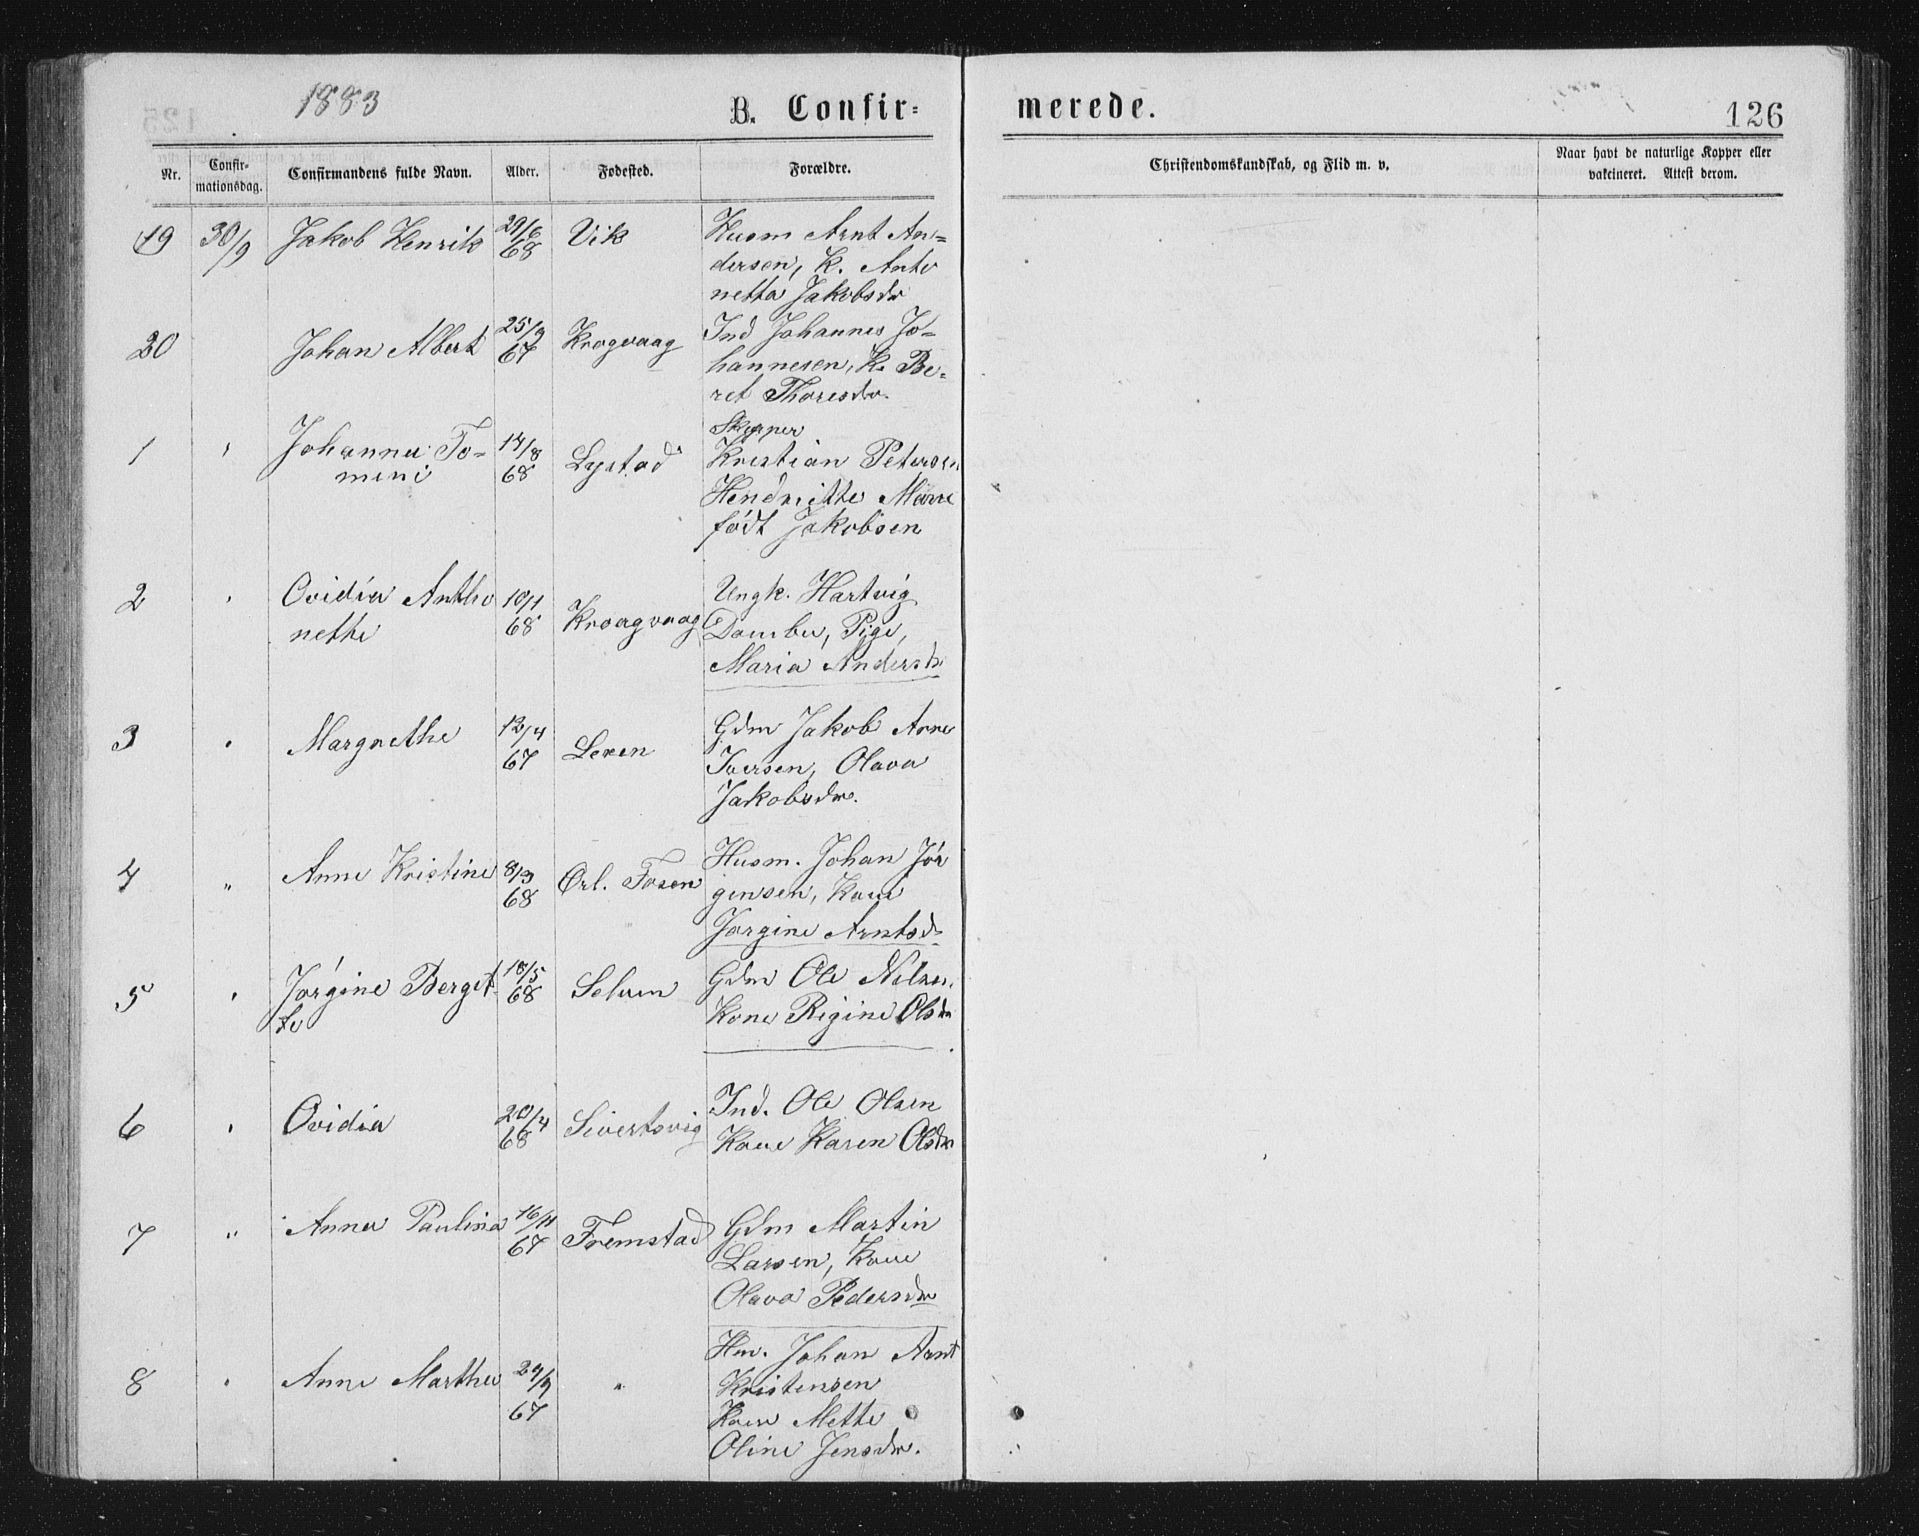 1883
B. Confir=
merede.
126
Nr.
Confir-
mationsdag.
Confirmandens fulde Navn.
Alder.
Fødested.
Forældre.
Christendomskundskab, og Flid m. v.
Naar havt de naturlige Kopper eller
vakcineret. Attest derom.
19 30/9 Jakob Henrik 29/6 68 Vik
Husm Arnt An=
dersen, K. Anto
netta Jakobsdr
20 Johan Albert 25/9 67 Krogvaag
Ind Johannes Jo=
hannesen, K. Be=
ret Thoresdr.
1 " Johanna To=
mine 14/8 68 Lystad
Skipper
Kristian Petersen
Hendritte Marie
født Jakobsen
2 " Ovidia Antho
nette 10/1 68 Kroagvaag
Ungk. Hartvig
Dambu, Pige,
Maria Andersdr
3 " Margrethe 12/4 67 Leren
Gdm Jakob Arne
Iversen, Olava
Jakobsdr.
4 " Anne Kristine 8/3 68 Ørl. Fosen
Husm. Johan Jør
gensen, Kone
Jørgine Arntsd=
5 " Jørgine Berget
te 18/5 68 Selven
Gdm Ole Nilsen
Kone Rigine Olsdr
6 " Ovidia 20/4 68 Sivertsvig
Ind. Ole Olsen
Kone Karen Olsdr
7 " Anna Paulina 16/11 67 Fremstad
Gdm Martin
Larsen, Kone
Olava Pedersdr
8 " Anne Martha 24/9 67 "
Hm. Johan Arnt
Kristensen
Kone Mette
Oline Jensdr.